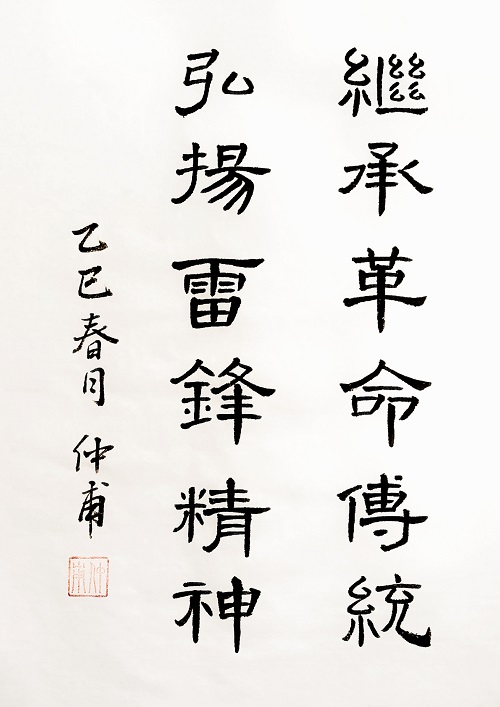 繼承革命傳統
弘揚雷鋒精神
乙巳春月 仲甫